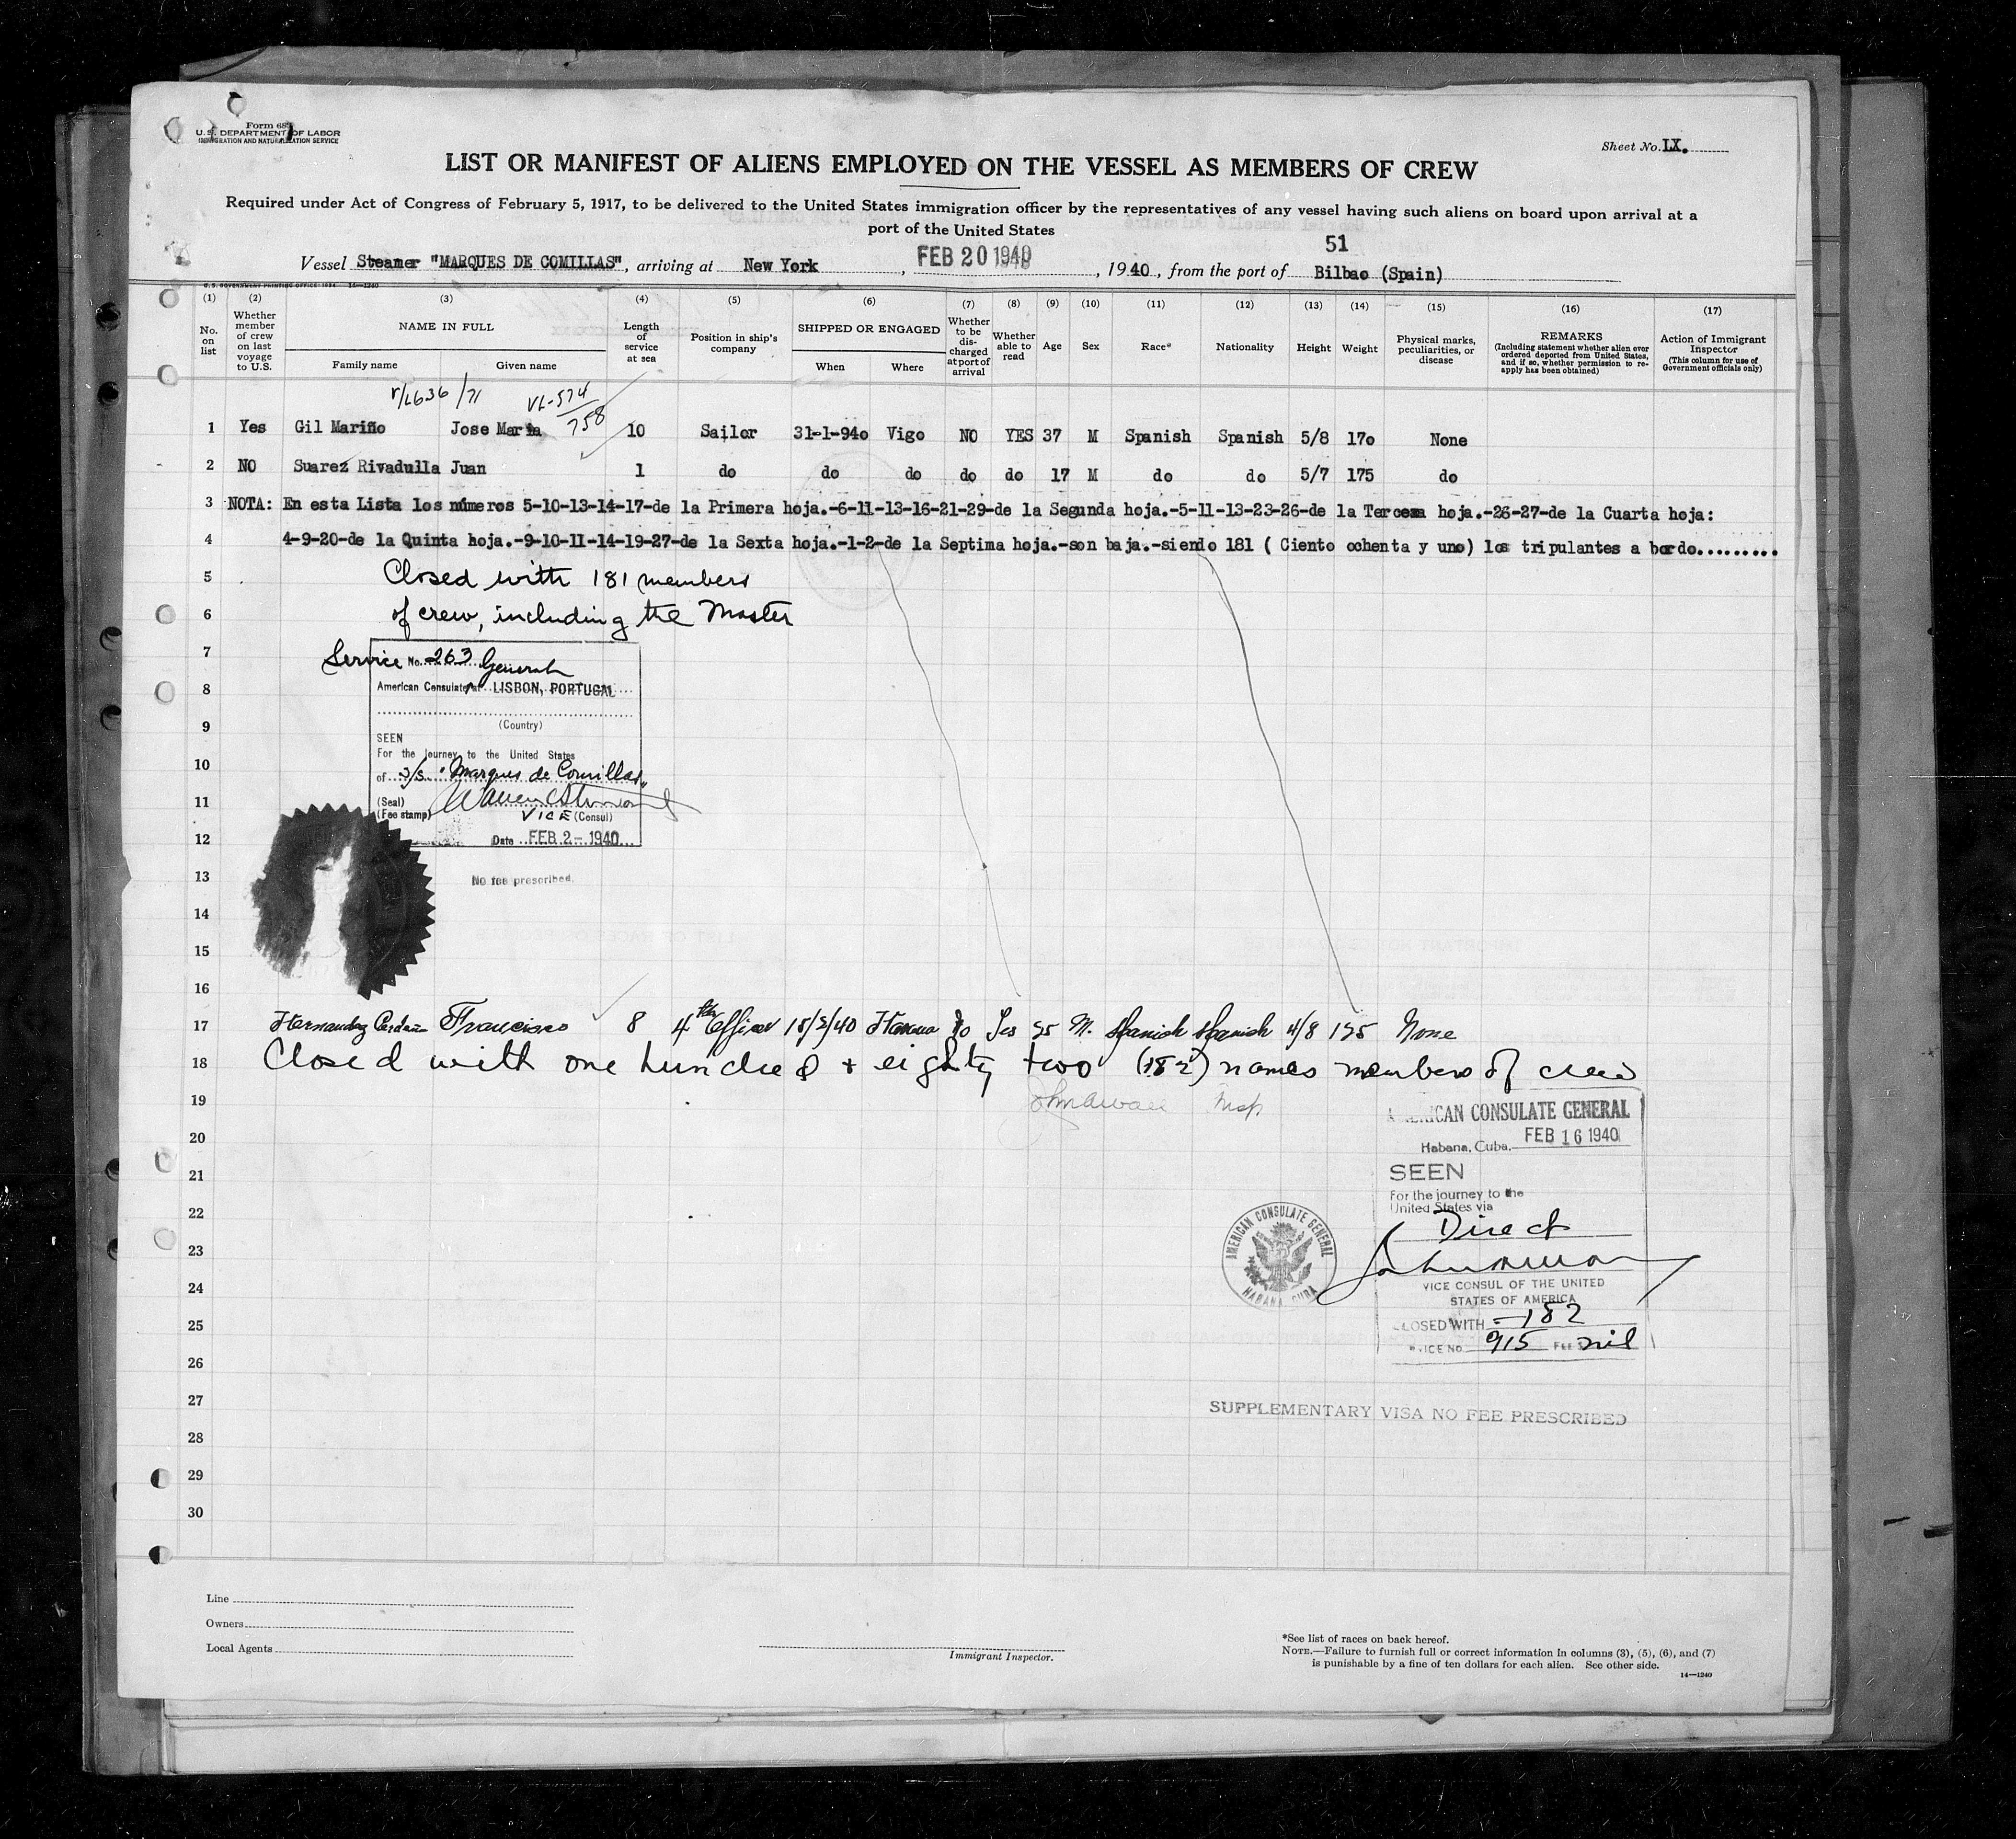 Form 680
U.S. DEPARTMENT OF LABOR
IMMIGRATION AND NATURALIZATION SERVICE
Sheet No. LX.
LIST OR MANIFEST OF ALIENS EMPLOYED ON THE VESSEL AS MEMBERS OF CREW
Required under Act of Congress of February 5, 1917, to be delivered to the United States immigration officer by the representatives of any vessel having such aliens on board upon arrival at a
port of the United States
51
Vessel Steamer "MARQUES DE COMILLAS", arriving at New York, FEB 20 1940, 1940, from the port of Bilbao (Spain)
U. S. GOVERNMENT PRINTING OFFICE: 1934 14—1240
(1) (2) (3) (4) (5) (6) (7) (8) (9) (10) (11) (12) (13) (14) (15) (16) (17)
No. on list
Whether member of crew on last voyage to U.S.
NAME IN FULL
Family name Given name
Length of service at sea
Position in ship's company
SHIPPED OR ENGAGED
When Where
Whether to be discharged at port of arrival
Whether able to read
Age Sex Race* Nationality Height Weight
Physical marks, peculiarities, or disease
REMARKS
(Including statement whether alien ever ordered deported from United States, and if so, whether permission to re-apply has been obtained)
Action of Immigrant Inspector
(This column for use of Government officials only)
VL-574
758
1 Yes Gil Mariño Jose Maria 10 Sailor 31-1-940 Vigo NO YES 37 M Spanish Spanish 5/8 170 None
2 NO Suarez Rivadulla Juan 1 do do do do do 17 M do do 5/7 175 do
3 NOTA: En esta Lista los números 5-10-13-14-17-de la Primera hoja.-6-11-13-16-21-29-de la Segunda hoja.-5-11-13-23-26-de la Tercera hoja.-26-27-de la Cuarta hoja:
4 4-9-20-de la Quinta hoja.-9-10-11-14-19-27-de la Sexta hoja.-1-2-de la Septima hoja.-son baja.-siendo 181 ( Ciento ochenta y uno) los tripulantes a bordo.........
5 Closed with 181 members
6 of crew, including the Master
7 Service No. 263 General
8 American Consulate at LISBON, PORTUGAL
9 (Country)
SEEN
For the journey to the United States
10 of S/S. "Marques de Comillas"
11 (Seal)
(Fee stamp) VICE (Consul)
12 Date FEB 2 - 1940
13 No fee prescribed.
14
15
16
17 Hernandez Francisco 8 4th Officer 15/2/40 Havana No Yes 25 M. Spanish Spanish 4/8 125 None
18 Closed with one hundred & eighty two (182) names members of crew
19 AMERICAN CONSULATE GENERAL
20 Habana, Cuba. FEB 16 1940
21 SEEN
For the journey to the
22 United States via
Direct
23
AMERICAN CONSULATE GENERAL
HABANA, CUBA
24 VICE CONSUL OF THE UNITED
STATES OF AMERICA
25 CLOSED WITH - 182
SERVICE NO. 915 FEE nil
26
27 SUPPLEMENTARY VISA NO FEE PRESCRIBED
28
29
30
Line
Owners
Local Agents
Immigrant Inspector.
*See list of races on back hereof.
NOTE.—Failure to furnish full or correct information in columns (3), (5), (6), and (7)
is punishable by a fine of ten dollars for each alien. See other side.
14—1240